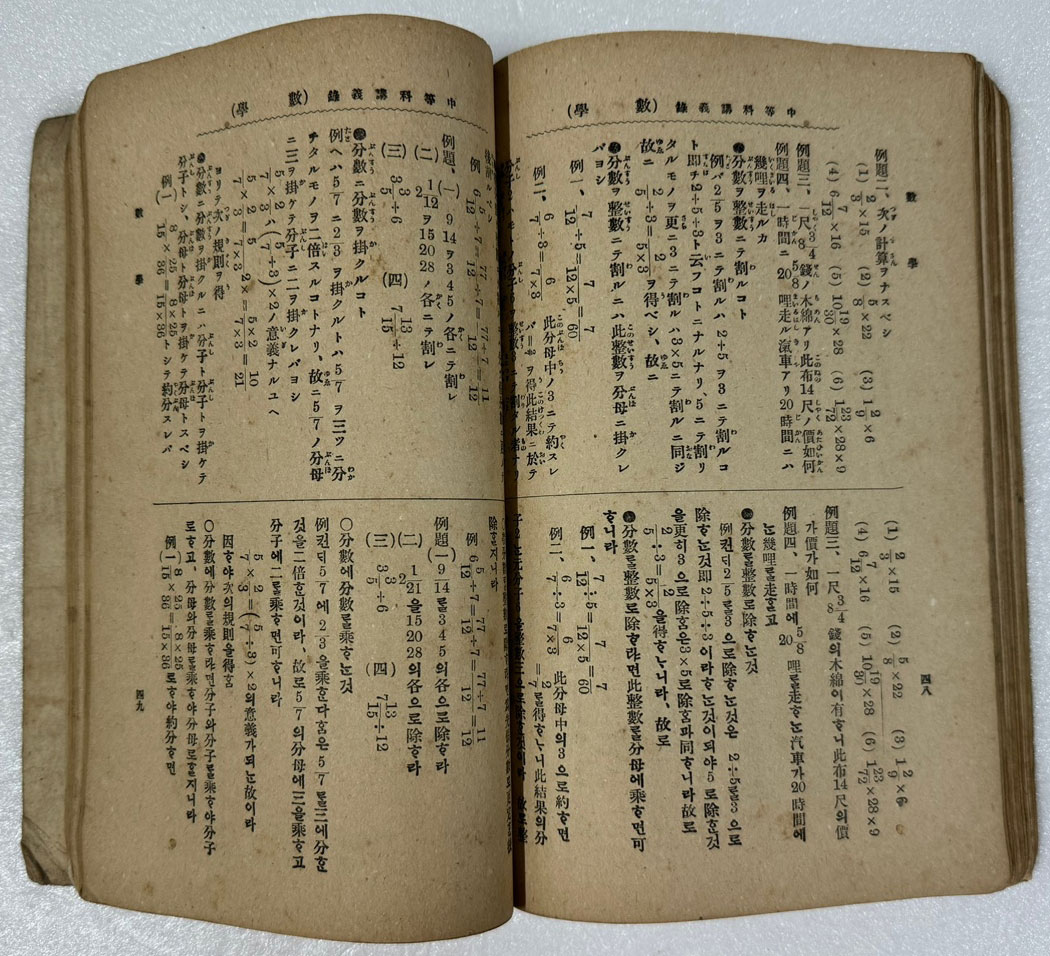 中等科講義錄 (數學)
數學
例題二、次ノ計算ヲナスベシ
(1) 2/3×15 (2) 5/8×22 (3) 1 2/9×6
(4) 6 7/12×16 (5) 10 19/30×28 (6) 1 23/72×28×9
例題三、一尺 8 3/4 錢ノ木綿アリ此布14尺ノ價如何
例題四、一時間ニ 20 5/8 哩走ル滊車アリ20時間ニハ
幾哩ヲ走ルカ
●分數ヲ整數ニテ割ルコト
例バ 2/5 ヲ3ニテ割ルハ 2÷5 ヲ3ニテ割ルコ
ト即チ2÷5÷3ト云フコトニナルナリ、5ニテ割リ
タルモノヲ更ニ3ニテ割ルハ3×5ニテ割ルニ同ジ
故ニ 2/5÷3=2/5×3 ヲ得ベシ、故ニ
●分數ヲ整數ニテ割ルニハ此整數ヲ分母ニ掛クレ
バヨシ
例一、 7/12÷5=7/12×5=7/60
例二、 6/7÷3=6/7×3 此分母中ノ3ニテ約スレ
バ=2/7ヲ得此結果ニ於テ
(1) 2/3×15 (2) 5/8×23 (3) 1 2/9×6
(4) 6 7/12×16 (5) 10 19/30×28 (6) 1 23/72×28×9
例題三、一尺 8 3/4 錢의木綿이有ᄒᆞ니此布14尺의價
가價가如何
例題四、一時間에 20 5/8 哩를走ᄒᆞᄂᆞᆫ汽車가20時間에
ᄂᆞᆫ幾哩를走ᄒᆞᆯ고
●分數를整數로除ᄒᆞᄂᆞᆫ것
例컨ᄃᆡ 2/5 를3으로除ᄒᆞᄂᆞᆫ것은 2÷5를3으로
除ᄒᆞᄂᆞᆫ것即2÷5÷3이라ᄒᆞᄂᆞᆫ것이되야5로除ᄒᆞᆫ것
을更히3으로除ᄒᆞᆷ은3×5로除ᄒᆞᆷ과同ᄒᆞ니라故로
2/5÷3=2/5×3 을得ᄒᆞᄂᆞ니라、故로
●分數를整數로除ᄒᆞ랴면此整數를分母에乘ᄒᆞ면可
ᄒᆞ니라
例一、 7/12÷5=7/12×5=7/60
例二、 6/7÷3=6/7×3 此分母中의3으로約ᄒᆞ면
=2/7를得ᄒᆞᄂᆞ니此結果의分
四八
中等科講義錄 (數學)
例 6 5/12÷7=77/12÷7=77÷7/12=11/12
例題、(一) 9 14ヲ3 4 5ノ各ニテ割レ
(二) 2 1/12ヲ15 20 28ノ各ニテ割レ
(三) 3 3/5÷6 (四) 7 13/15÷12
●分數ニ分數ヲ掛クルコト
例ヘハ 5/7 ニ 2/3 ヲ掛クルトハ 5/7 ヲ三ツニ分
チタルモノヲ二倍スルコトナリ、故ニ 5/7 ノ分母
ニ三ヲ掛ケテ分子ニ二ヲ掛クレバヨシ
5/7×2/3ハ(5/7÷3)×2ノ意義ナルユヘ
5/7×2/3=5/7×3×2=5×2/7×3=10/21
ヨリテ次ノ規則ヲ得
●分數ニ分數ヲ掛クルニハ分子ト分子トヲ掛ケテ
分子トシ、分母ト分母トヲ掛ケテ分母トスベシ
例(一) 8/15×25/36=8×25/15×36トシテ約分スレバ
除ᄒᆞᆯ지니라
例 6 5/12÷7=77/12÷7=77÷7/12=11/12
例題(一) 9 14를3 4 5의各으로除ᄒᆞ라
(二) 2 1/21을15 20 28의各으로除ᄒᆞ라
(三) 3 3/5÷6 (四) 7 13/15÷12
○分數에分數를乘ᄒᆞᄂᆞᆫ것
例컨ᄃᆡ 5/7 에 2/3 을乘ᄒᆞᆫ다ᄒᆞᆷ은 5/7 를三에分ᄒᆞᆫ
것을二倍ᄒᆞᆫ것이라、故로 5/7 의分母에三을乘ᄒᆞ고
分子에二를乘ᄒᆞ면可ᄒᆞ니라
5/7×2/3=(5/7÷3)×2의意義가되ᄂᆞᆫ故이라
因ᄒᆞ야次의規則을得ᄒᆞᆷ
○分數에分數를乘ᄒᆞ랴면分子와分子를乘ᄒᆞ야分子
로ᄒᆞ고、分母와分母를乘ᄒᆞ야分母로ᄒᆞᆯ지니라
例(一) 8/15×25/36=8×25/15×36로ᄒᆞ야約分ᄒᆞ면
數學
四九